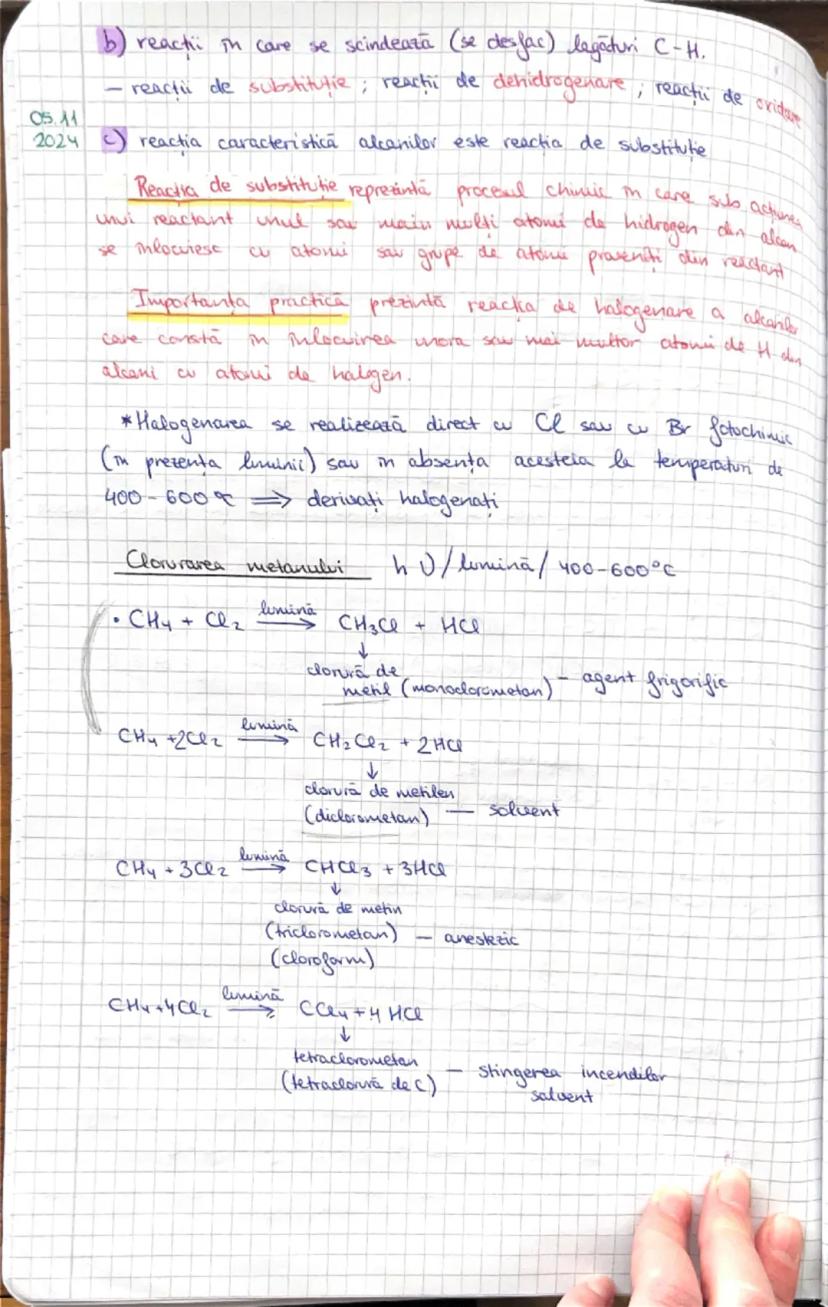 b) reacții în care se scindează (se desfac) legături C-H.
- reacții de substituție ; reacții de dehidrogenare ; reacții de oxidare
05.11
2024 c) reacția caracteristică alcanilor este reacția de substituție
Reacția de substituție reprezintă procesul chimic în care sub acțiunea
unui reactant unul sau mai mulți atomi de hidrogen din alcan
se înlocuiesc cu atomi sau grupe de atomi proveniți din reactant
Importanța practică prezintă reacția de halogenare a alcanilor
care constă în înlocuirea unora sau mai multor atomi de H din
alcani cu atomi de halogen.
*Halogenarea se realizează direct cu Cl sau cu Br fotochimic
(în prezența luminii) sau în absența acesteia la temperaturi de
400-600 °C ⟹ derivați halogenați
Clorurarea metanului h ν / lumină / 400-600°C
• CH₄ + Cl₂ —lumină→ CH₃Cl + HCl
↓
clorură de
metil (monoclorometan) - agent frigorific
CH₄ + 2Cl₂ —lumină→ CH₂Cl₂ + 2HCl
↓
clorură de metilen
(diclorometan) — solvent
CH₄ + 3Cl₂ —lumină→ CHCl₃ + 3HCl
↓
clorură de metin
(triclorometan) - anestezic
(cloroform)
CH₄ + 4Cl₂ —lumină→ CCl₄ + 4 HCl
↓
tetraclorometan
(tetraclorură de C) - stingerea incendiilor
solvent